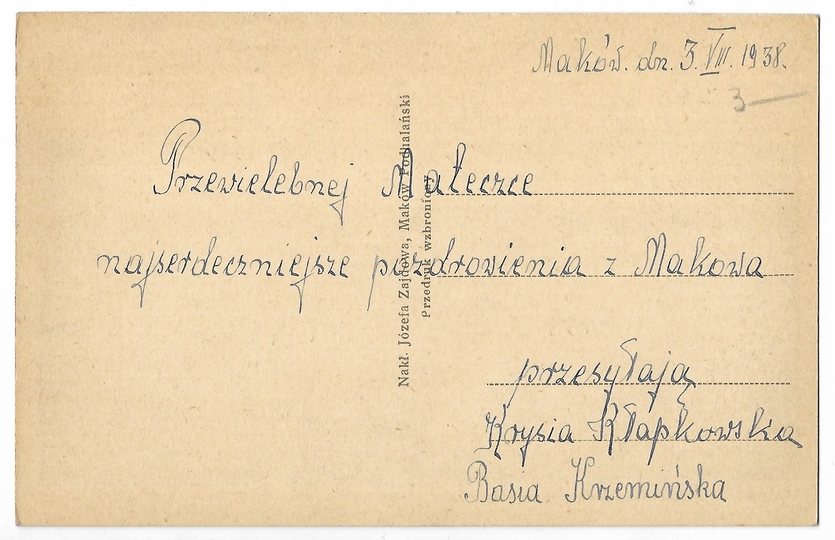 Maków. dn. 3.VIII. 1938.
3—
Przewielebnej Mateczce
najserdeczniejsze pozdrowienia z Makowa
przesyłają
Krysia Kłapkowska
Basia Krzemińska
Nakł. Józefa Zajdowa, Maków Podhalański
Przedruk wzbroniony